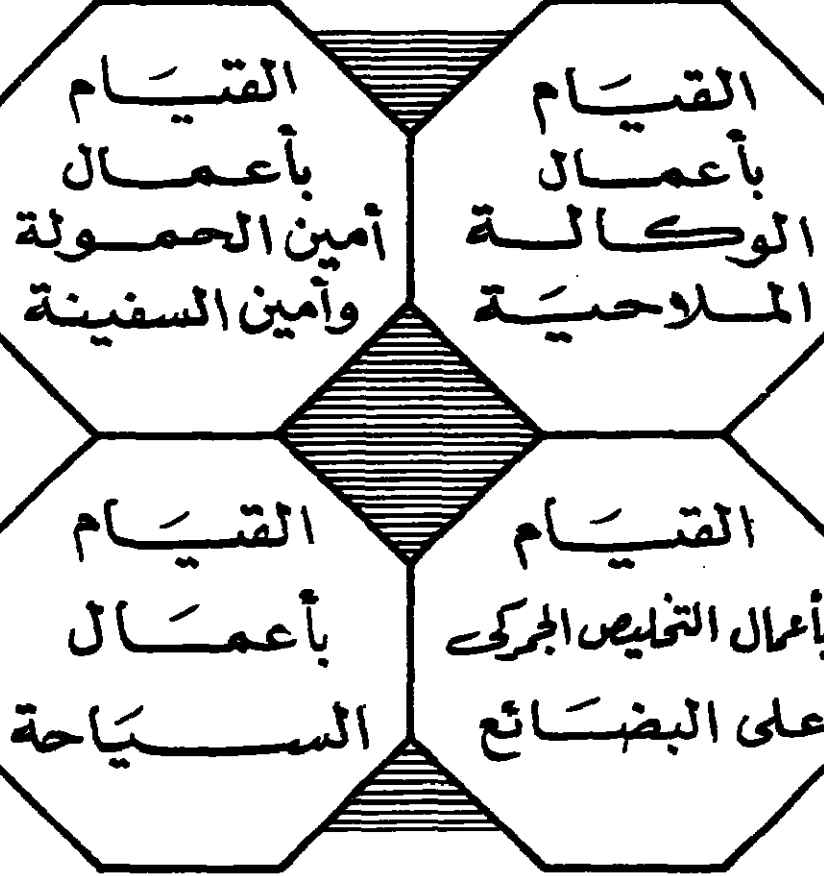 القيام
بأعمال
الوكالة
الملاحية
القيام
بأعمال
أمين الحمولة
وأمين السفينة
القيام
بأعمال التخليص الجمركى
على البضائع
القيام
بأعمال
السياحة